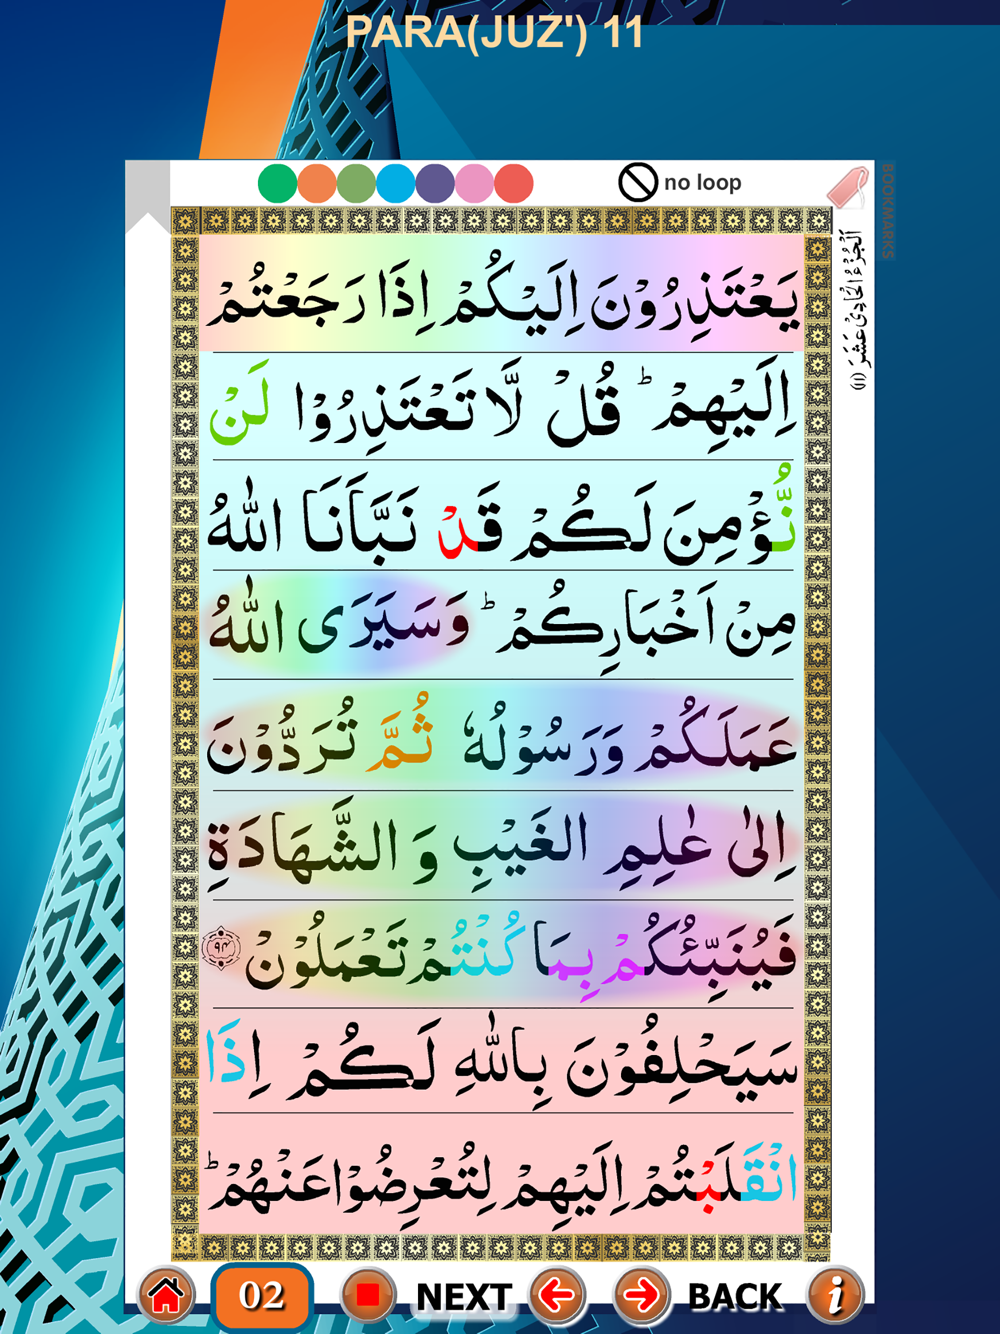 PARA(JUZ') 11
no loop
BOOKMARKS
اَلْجُزْءُ الْحَادِیْ عَشَرَ (۱۱)
يَعْتَذِرُوْنَ اِلَيْكُمْ اِذَا رَجَعْتُمْ
اِلَيْهِمْ ؕ قُلْ لَّا تَعْتَذِرُوْا لَنْ
نُّؤْمِنَ لَكُمْ قَدْ نَبَّاَنَا اللّٰهُ
مِنْ اَخْبَارِكُمْ ؕ وَسَيَرَى اللّٰهُ
عَمَلَكُمْ وَرَسُوْلُهٗ ثُمَّ تُرَدُّوْنَ
اِلٰى عٰلِمِ الْغَيْبِ وَ الشَّهَادَةِ
فَيُنَبِّئُكُمْ بِمَا كُنْتُمْ تَعْمَلُوْنَ ۹۴
سَيَحْلِفُوْنَ بِاللّٰهِ لَكُمْ اِذَا
انْقَلَبْتُمْ اِلَيْهِمْ لِتُعْرِضُوْا عَنْهُمْ ؕ
02 NEXT BACK i